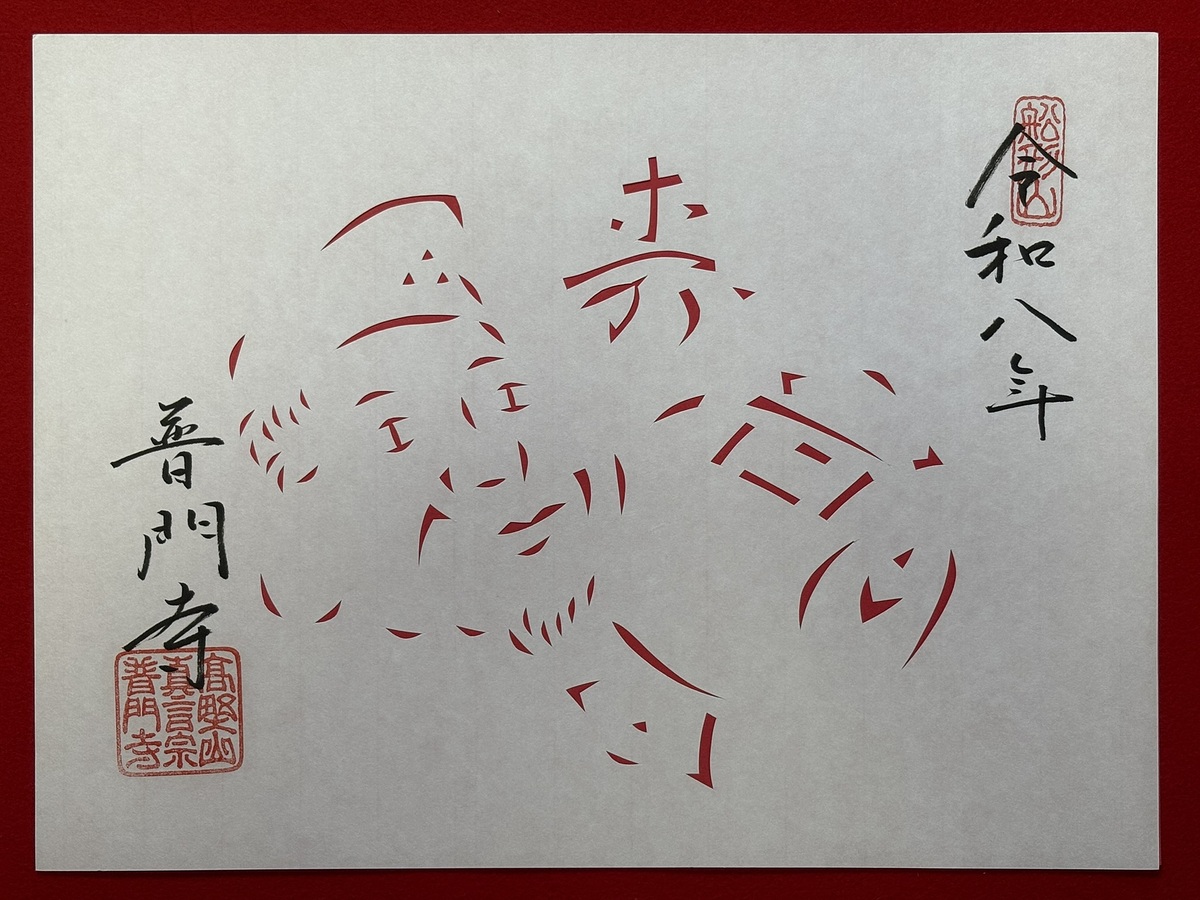 舩形山
令和八年
普門寺
高野山
真言宗
普門寺